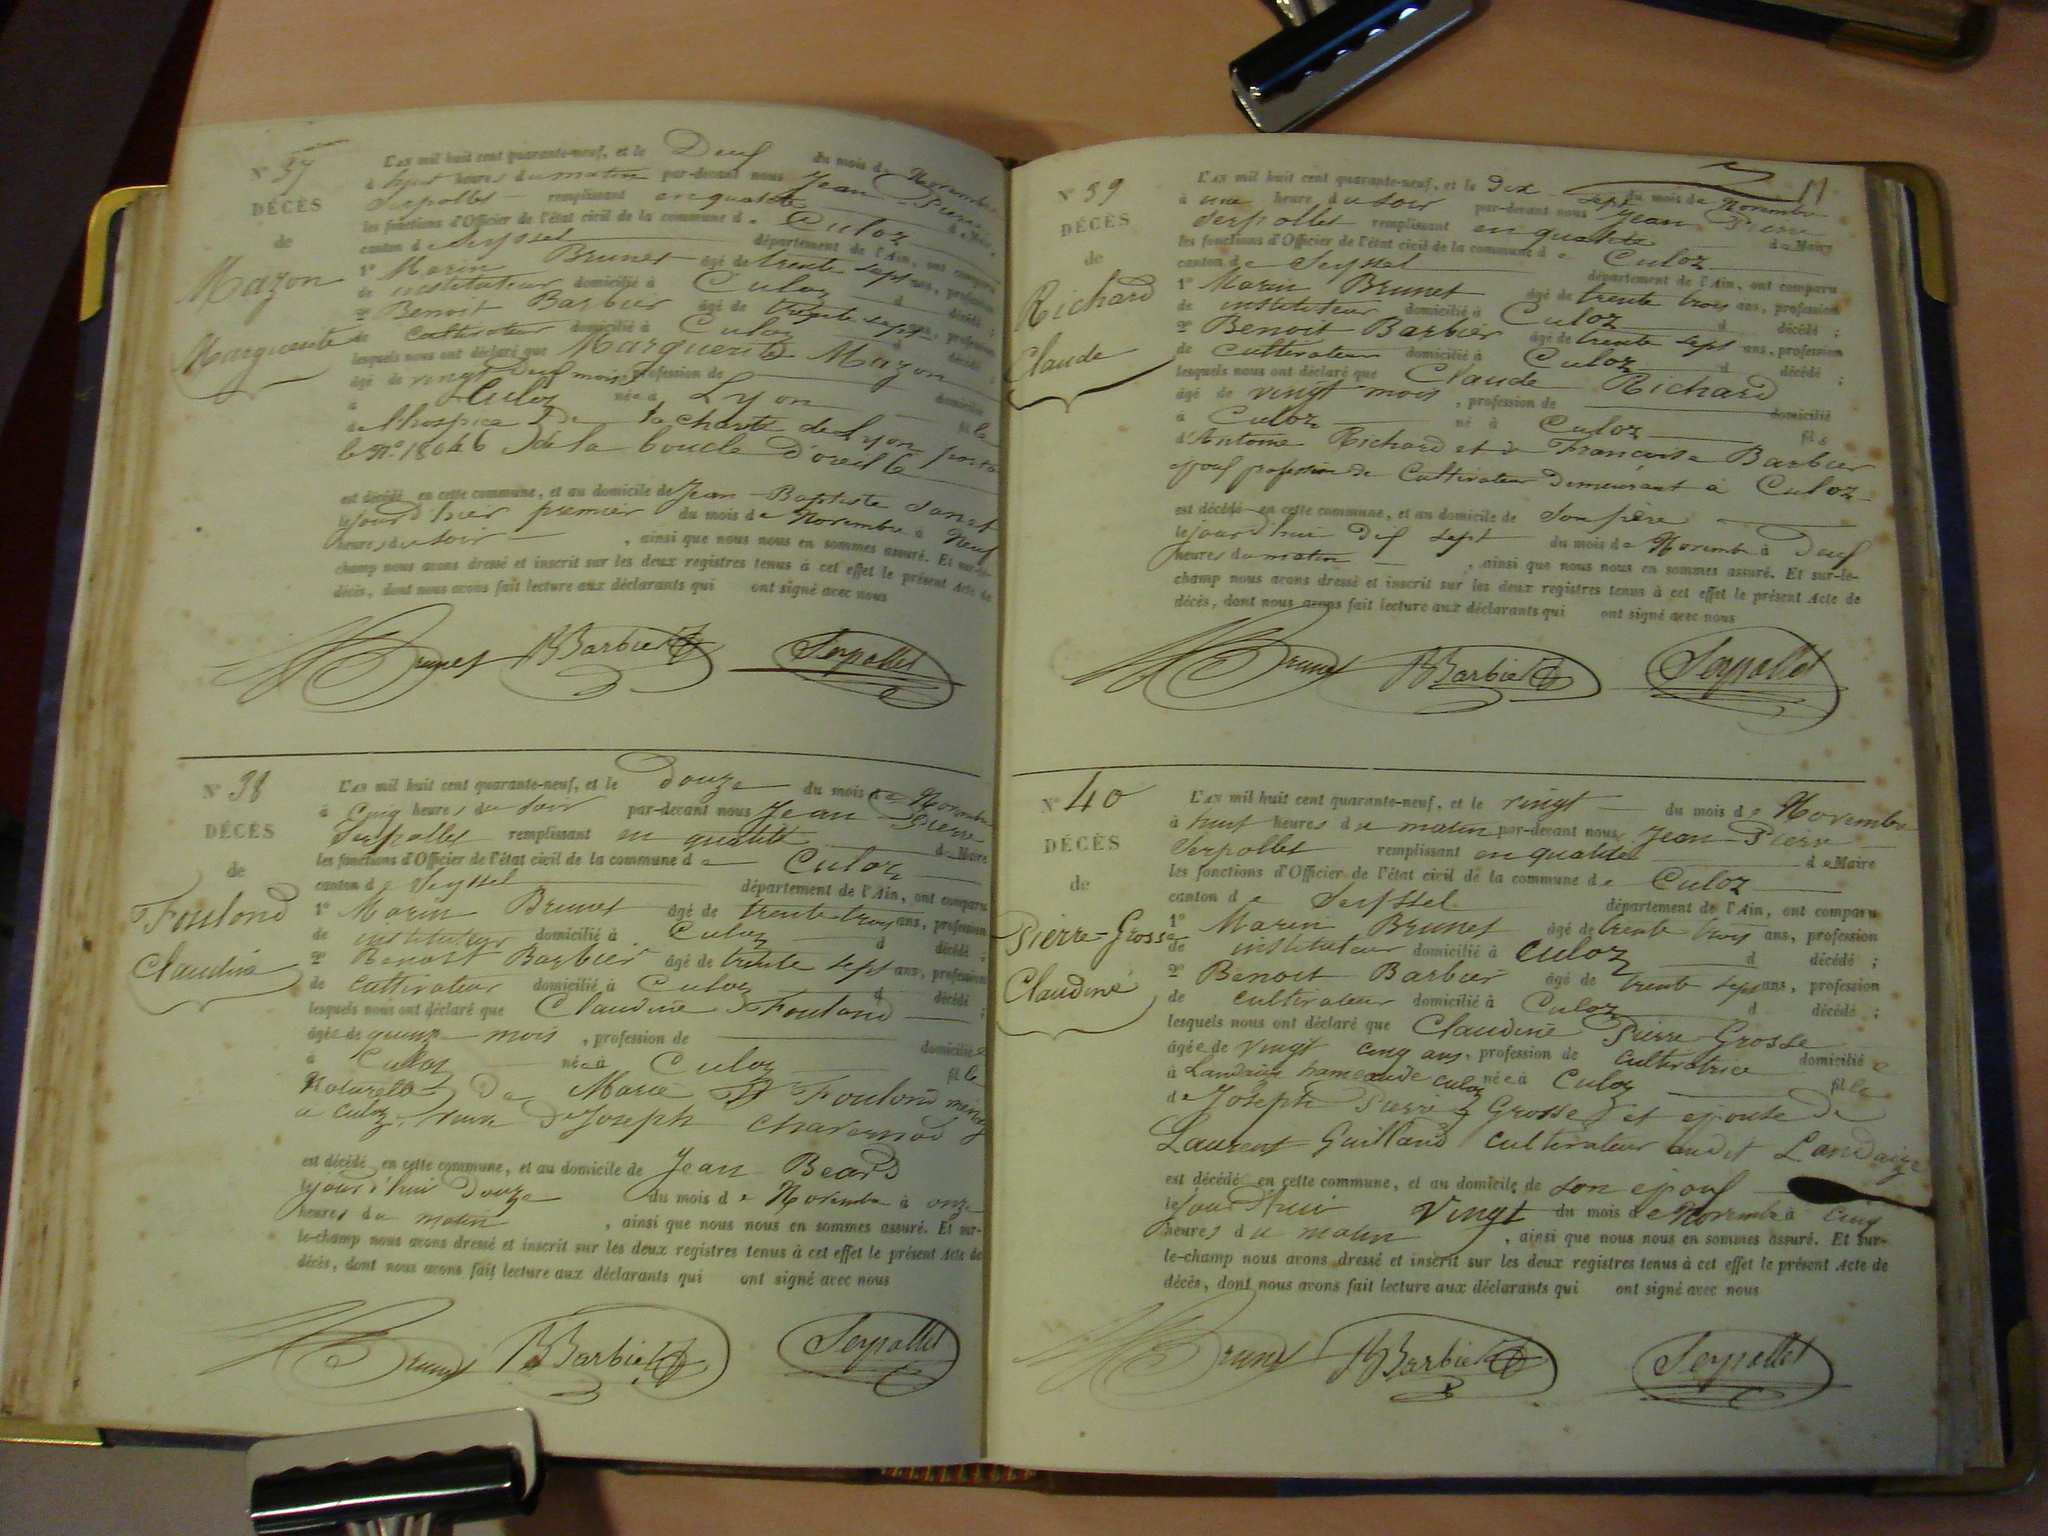 N° 37
DÉCÈS
de
Mazon
Marguerite
L'AN mil huit cent quarante-neuf, et le Deux du mois de Novembre
à huit heures du matin par-devant nous Jean Pierre
Serpollet remplissant en qualité de Maire
les fonctions d'Officier de l'état civil de la commune de Culoz
canton de Seyssel département de l'Ain, ont comparu
1° Marin Brunet âgé de trente sept ans, profession
de instituteur domicilié à Culoz d décédé ;
2° Benoit Barbier âgé de trente sept ans, profession
de cultivateur domicilié à Culoz d décédé ;
lesquels nous ont déclaré que Marguerite Mazon
âgé de vingt Deux mois, profession de domicilié
à Culoz née à Lyon fille
de l'hospice De la charité de Lyon portant
le N° 18046 de la boucle D'oreille
est décédé en cette commune, et au domicile de Jean-Baptiste
le jour d'hier premier du mois de Novembre à Neuf
heures du soir, ainsi que nous nous en sommes assuré. Et sur-le-
champ nous avons dressé et inscrit sur les deux registres tenus à cet effet le présent Acte de
décès, dont nous avons fait lecture aux déclarants qui ont signé avec nous
Brunet B Barbier Serpollet
N° 38
DÉCÈS
de
Foulond
Claudine
L'AN mil huit cent quarante-neuf, et le douze du mois de Novembre
à Cinq heures du soir par-devant nous Jean Pierre
Serpollet remplissant en qualité de Maire
les fonctions d'Officier de l'état civil de la commune de Culoz
canton de Seyssel département de l'Ain, ont comparu
1° Marin Brunet âgé de trente trois ans, profession
de instituteur domicilié à Culoz d décédé ;
2° Benoit Barbier âgé de trente sept ans, profession
de cultivateur domicilié à Culoz d décédé ;
lesquels nous ont déclaré que Claudine Foulond
âgée de quinze mois, profession de domiciliée
à Culloz née à Culoz fille
Naturelle De Marie Foulond
a culoz, veuve De Joseph Chavernod
est décédé en cette commune, et au domicile de Jean Beard
le jour d'hui Douze du mois de Novembre à onze
heures du matin, ainsi que nous nous en sommes assuré. Et sur-
le-champ nous avons dressé et inscrit sur les deux registres tenus à cet effet le présent Acte de
décès, dont nous avons fait lecture aux déclarants qui ont signé avec nous
Brunet B Barbier Serpollet
11
N° 39
DÉCÈS
de
Richard
Claude
L'AN mil huit cent quarante-neuf, et le Dix sept du mois de Novembre
à une heure du soir par-devant nous Jean Pierre
Serpollet remplissant en qualité de Maire
les fonctions d'Officier de l'état civil de la commune de Culoz
canton de Seyssel département de l'Ain, ont comparu
1° Marin Brunet âgé de trente trois ans, profession
de instituteur domicilié à Culoz d décédé ;
2° Benoit Barbier âgé de trente sept ans, profession
de cultivateur domicilié à Culoz d décédé ;
lesquels nous ont déclaré que Claude Richard
âgé de vingt mois, profession de domicilié
à Culoz né à Culoz fils
d'Antoine Richard et de Françoise Barbier
époux profession de Cultivateur Demeurant à Culoz
est décédé en cette commune, et au domicile de Son père
le jourd'hui Dix sept du mois de Novembre à Deux
heures du matin, ainsi que nous nous en sommes assuré. Et sur-le-
champ nous avons dressé et inscrit sur les deux registres tenus à cet effet le présent Acte de
décès, dont nous avons fait lecture aux déclarants qui ont signé avec nous
Brunet B Barbier Serpollet
N° 40
DÉCÈS
de
Pierre-Grosse
Claudine
L'AN mil huit cent quarante-neuf, et le vingt du mois de Novembre
à huit heures du matin par-devant nous Jean-Pierre
Serpollet remplissant en qualité de Maire
les fonctions d'Officier de l'état civil de la commune de Culoz
canton d Seyssel département de l'Ain, ont comparu
1° Marin Brunet âgé de trente trois ans, profession
de instituteur domicilié à Culoz d décédé ;
2° Benoit Barbier âgé de trente sept ans, profession
de cultivateur domicilié à Culoz d décédé ;
lesquels nous ont déclaré que Claudine Pierre-Grosse
âgée de vingt cinq ans, profession de cultivatrice domiciliée
à Landaize hameau de culoz née à Culoz fille
de Joseph Pierre Grosse et épouse de
Laurent Guilland cultivateur audit Landaize
est décédé en cette commune, et au domicile de son époux
le jourd'hui Vingt du mois de Novembre à cinq
heures du matin, ainsi que nous nous en sommes assuré. Et sur-
le-champ nous avons dressé et inscrit sur les deux registres tenus à cet effet le présent Acte de
décès, dont nous avons fait lecture aux déclarants qui ont signé avec nous
Brunet B Barbier Serpollet